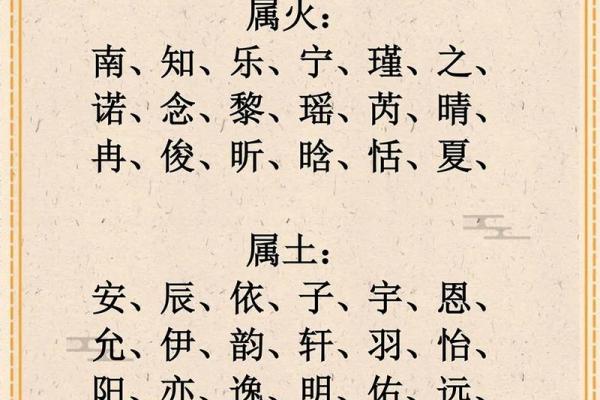 属火：
南、知、乐、宁、瑾、之、
诺、念、黎、瑶、芮、晴、
冉、俊、昕、晗、恬、夏、
属土：
安、辰、依、子、宇、恩、
允、伊、韵、轩、羽、怡、
阳、亦、逸、明、佑、远、